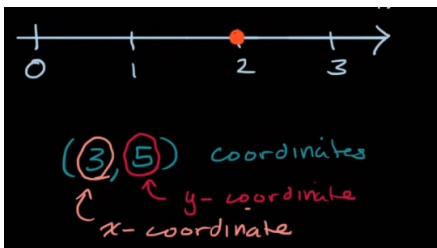 0 1 2 3
(3,5) coordinates
y-coordinate
x-coordinate